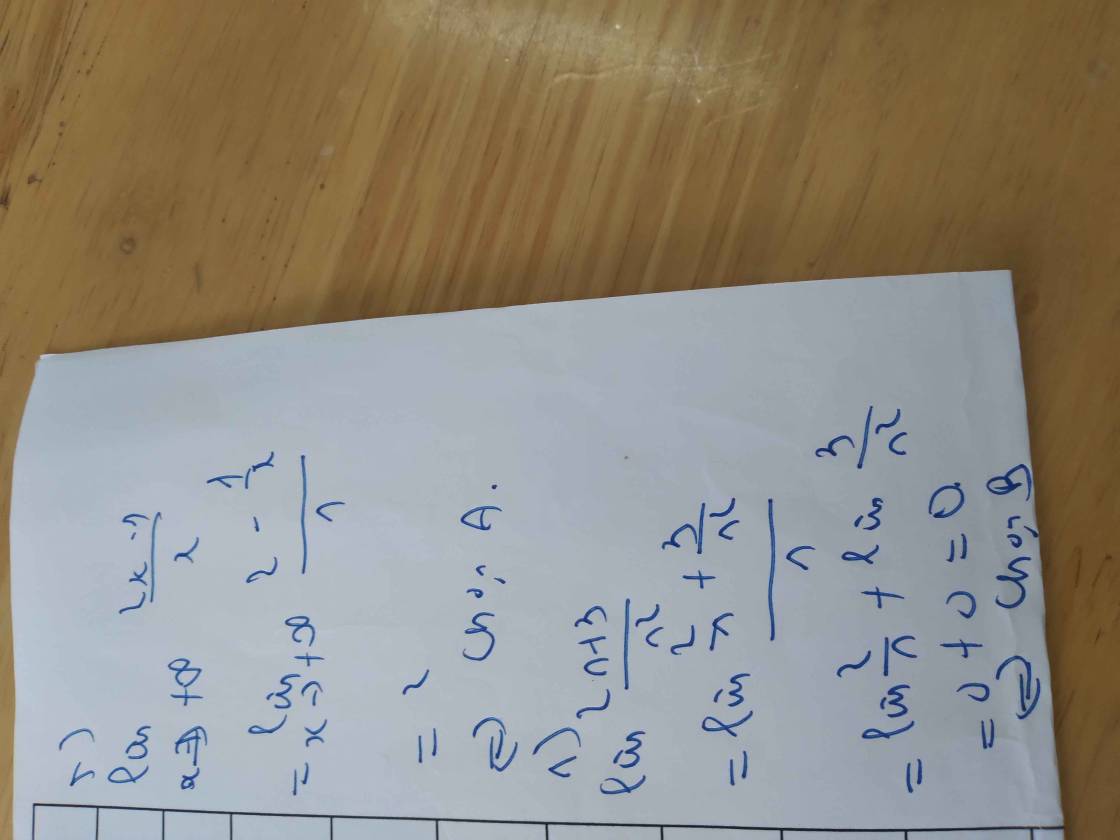 5)
lim 2x-1/x
x→+∞
= lim x→+∞ (2 - 1/x)/1
= 2
⇒ Chọn A.
1)
lim 2n+3/n²
= lim (2/n + 3/n²)/1
= lim 2/n + lim 3/n²
= 0 + 0 = 0
⇒ Chọn B